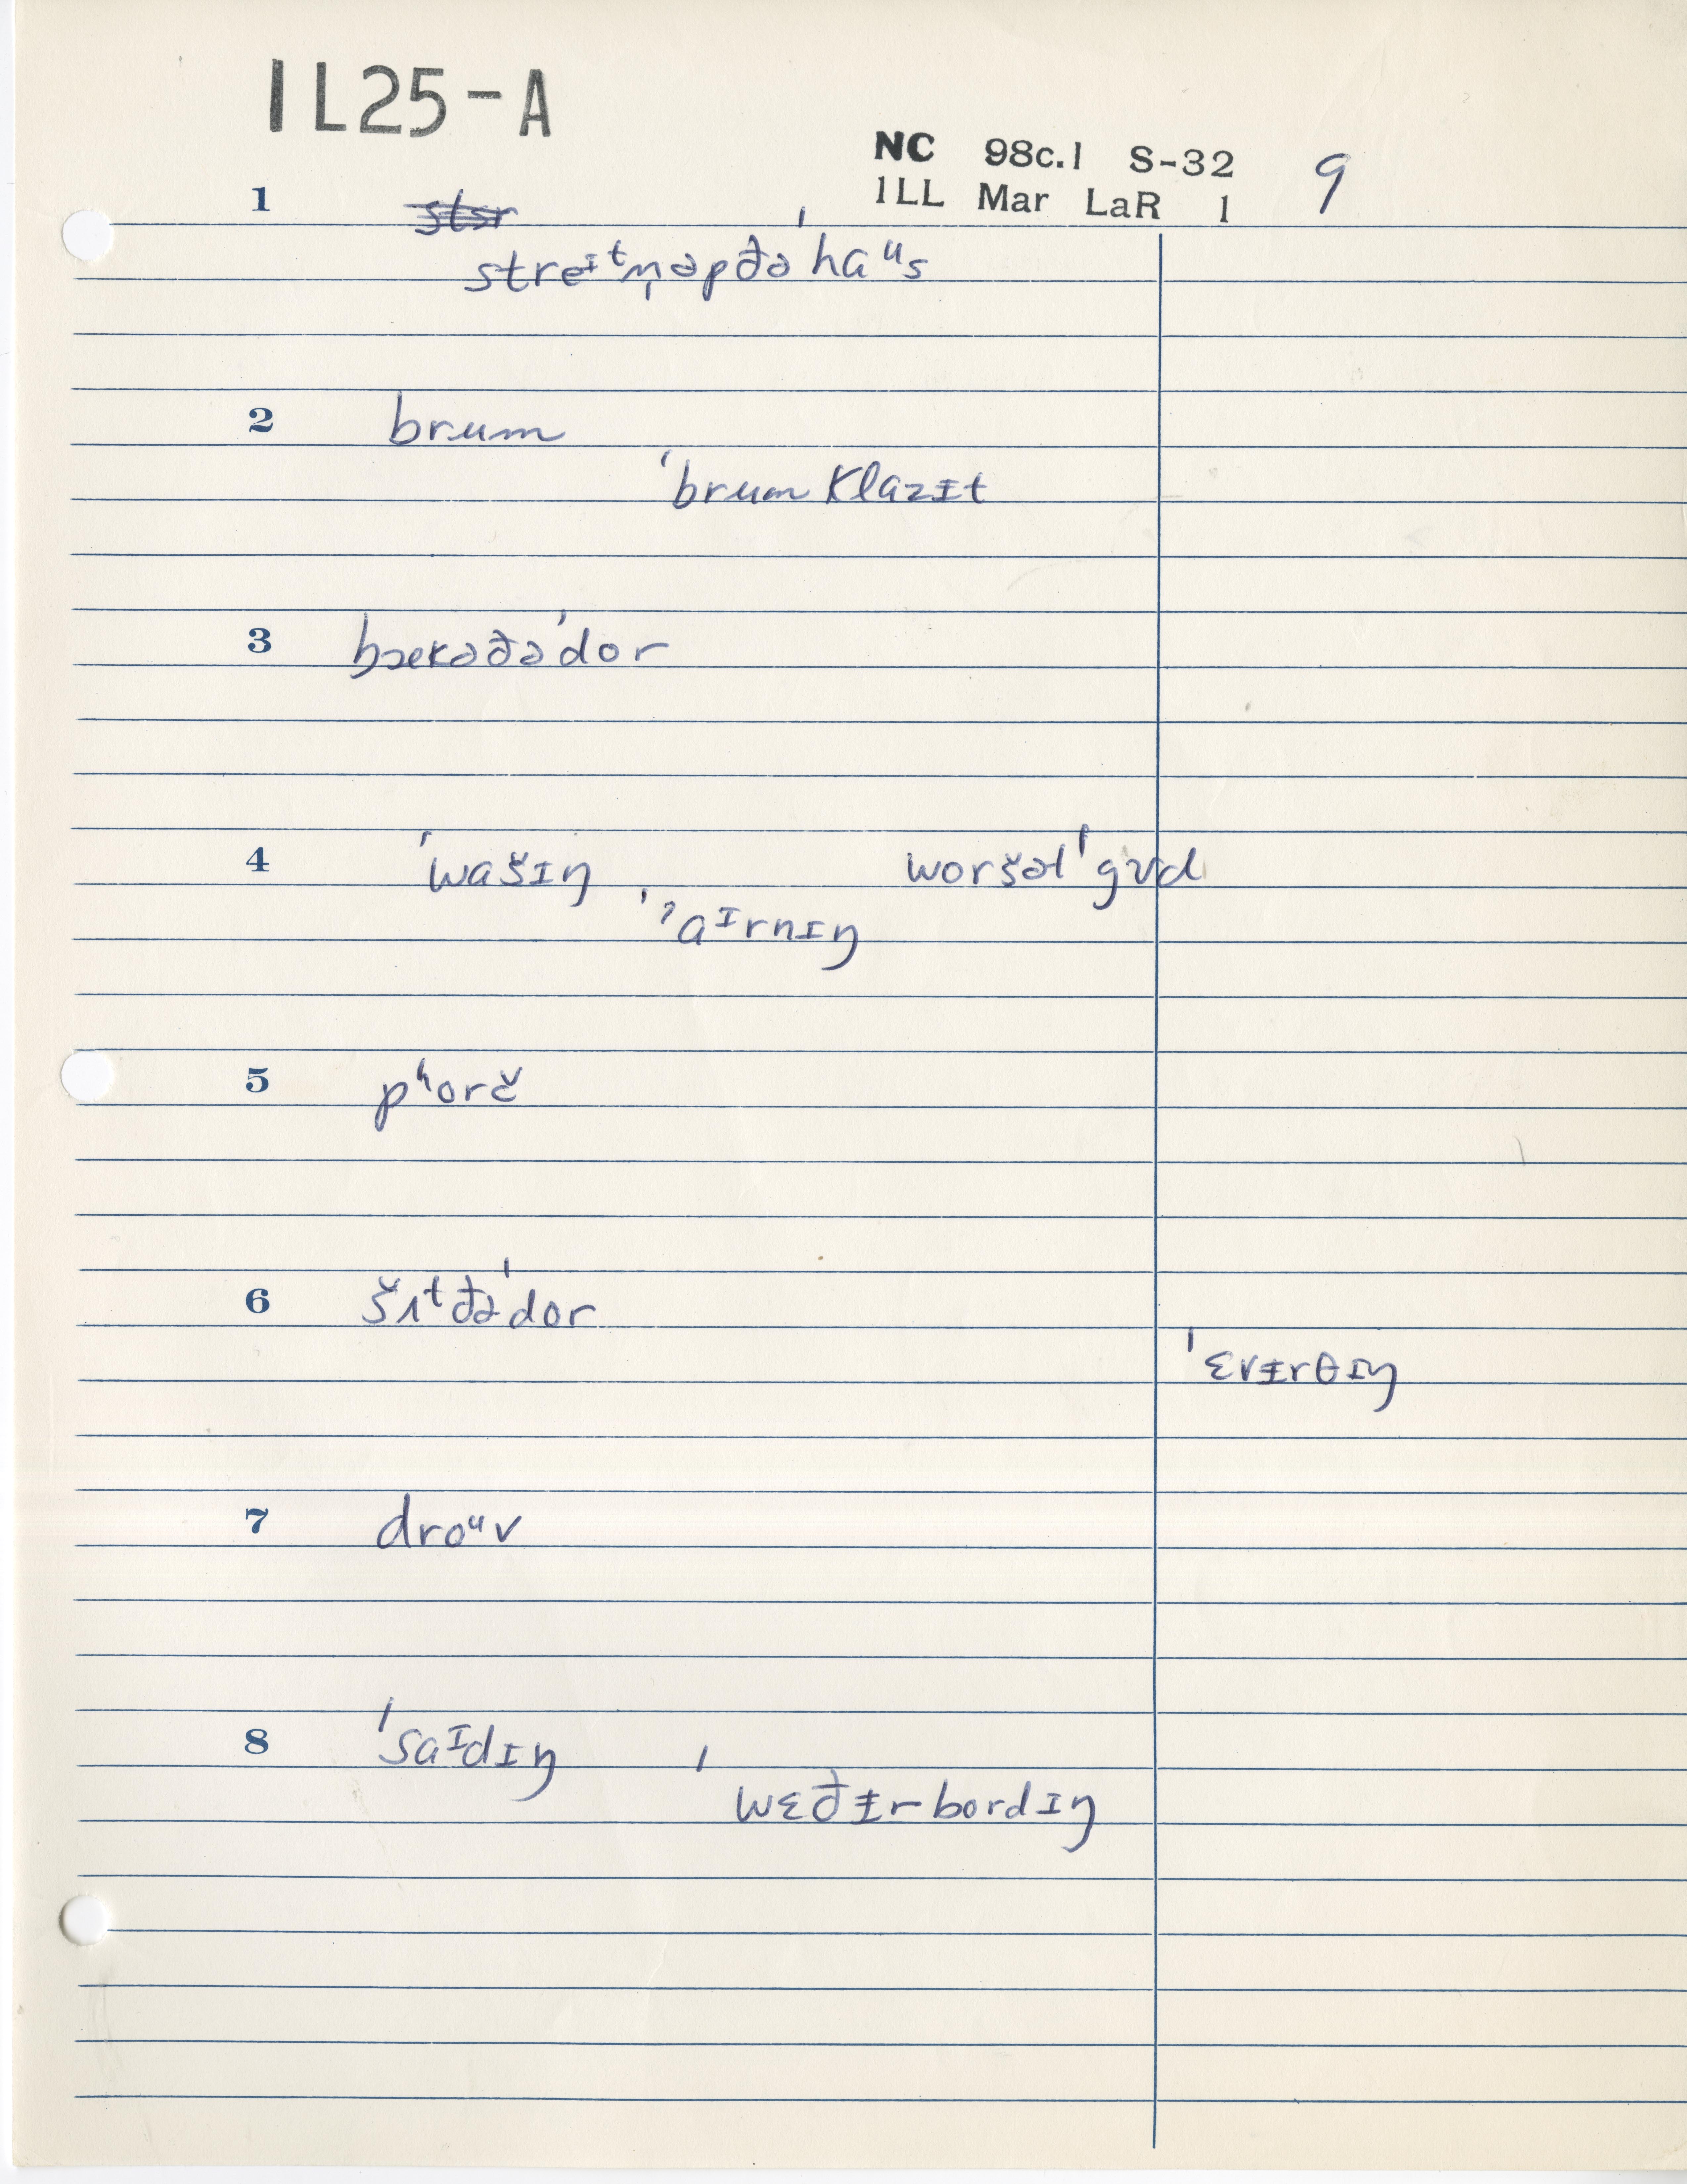 1L25-A
NC 98c.1 S-32 9
1LL Mar LaR 1
1
streᶦᵗn̩əpðəˈhaᵘs
2 brum
ˈbrum klazɨt
3 bækəðəˈdor
4 ˈwašɪŋ woršəlˈgʊd
ˈˀaᶦrnɪŋ
5 pʰorč
6 šʌᵗðəˈdor
ˈɛvɨrθɪŋ
7 droᵘv
8 ˈsaᶦdɪŋ
ˈwɛðɨrbordɪŋ